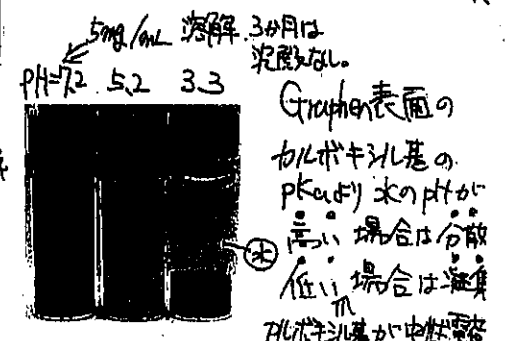 5mg/mL 溶解. 3か月は
沈殿なし。
pH=7.2 5.2 3.3
Graphen表面の
カルボキシル基の
pKaより水のpHが
高い 場合は分散
低い 場合は凝集
水
カルボキシル基が中性電荷